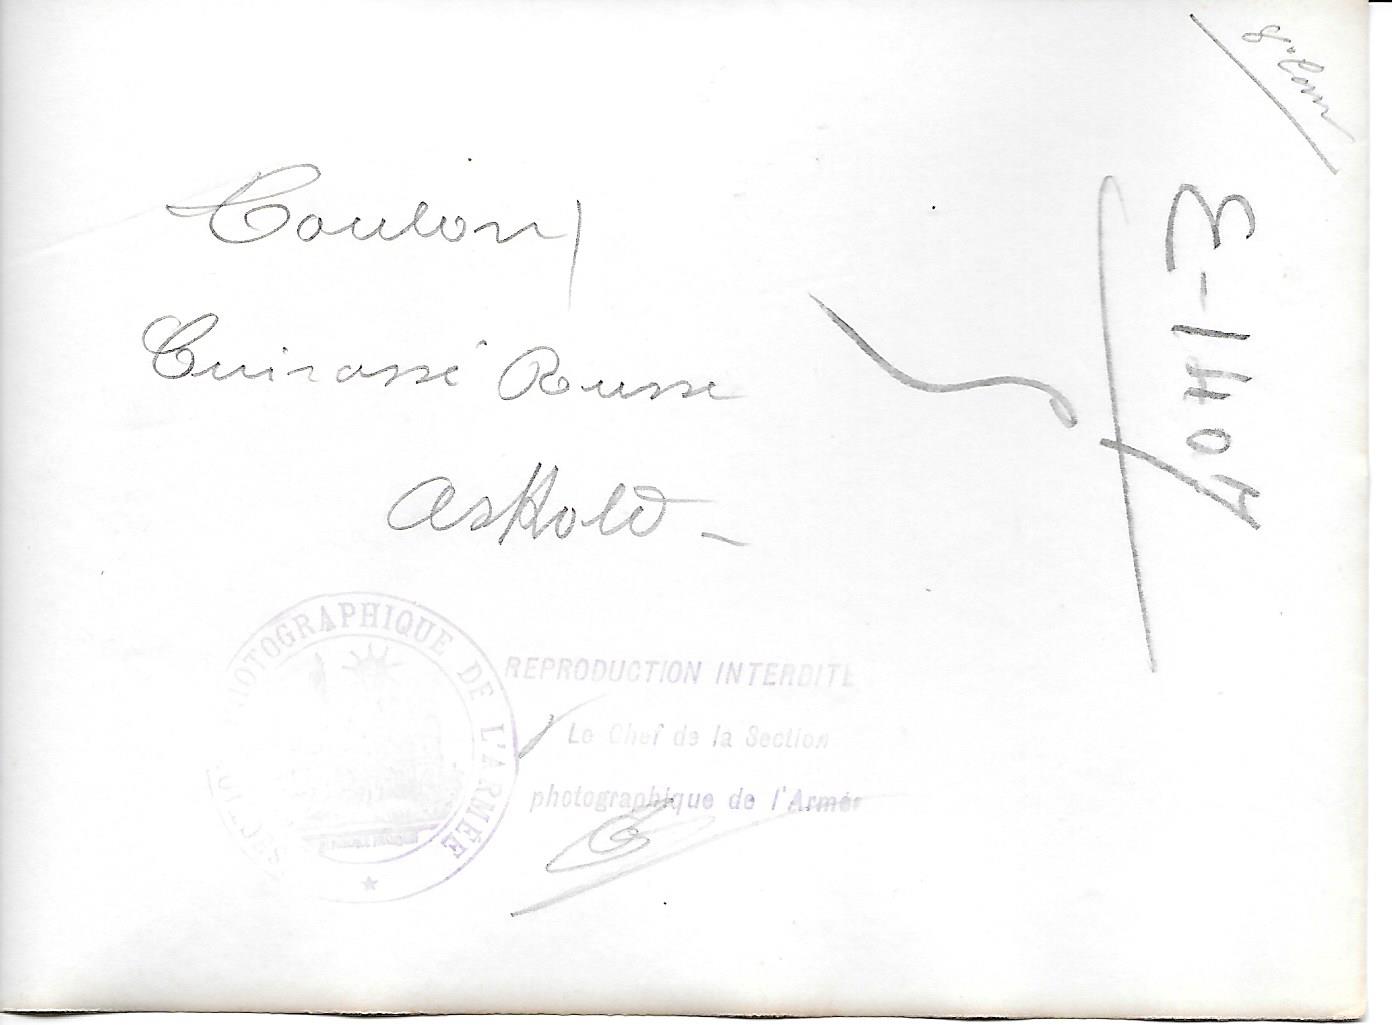 Toulon
Cuirassé Russe
Askold -
PHOTOGRAPHIQUE DE L'ARMÉE
REPRODUCTION INTERDITE
Le Chef de la Section
photographique de l'Armée